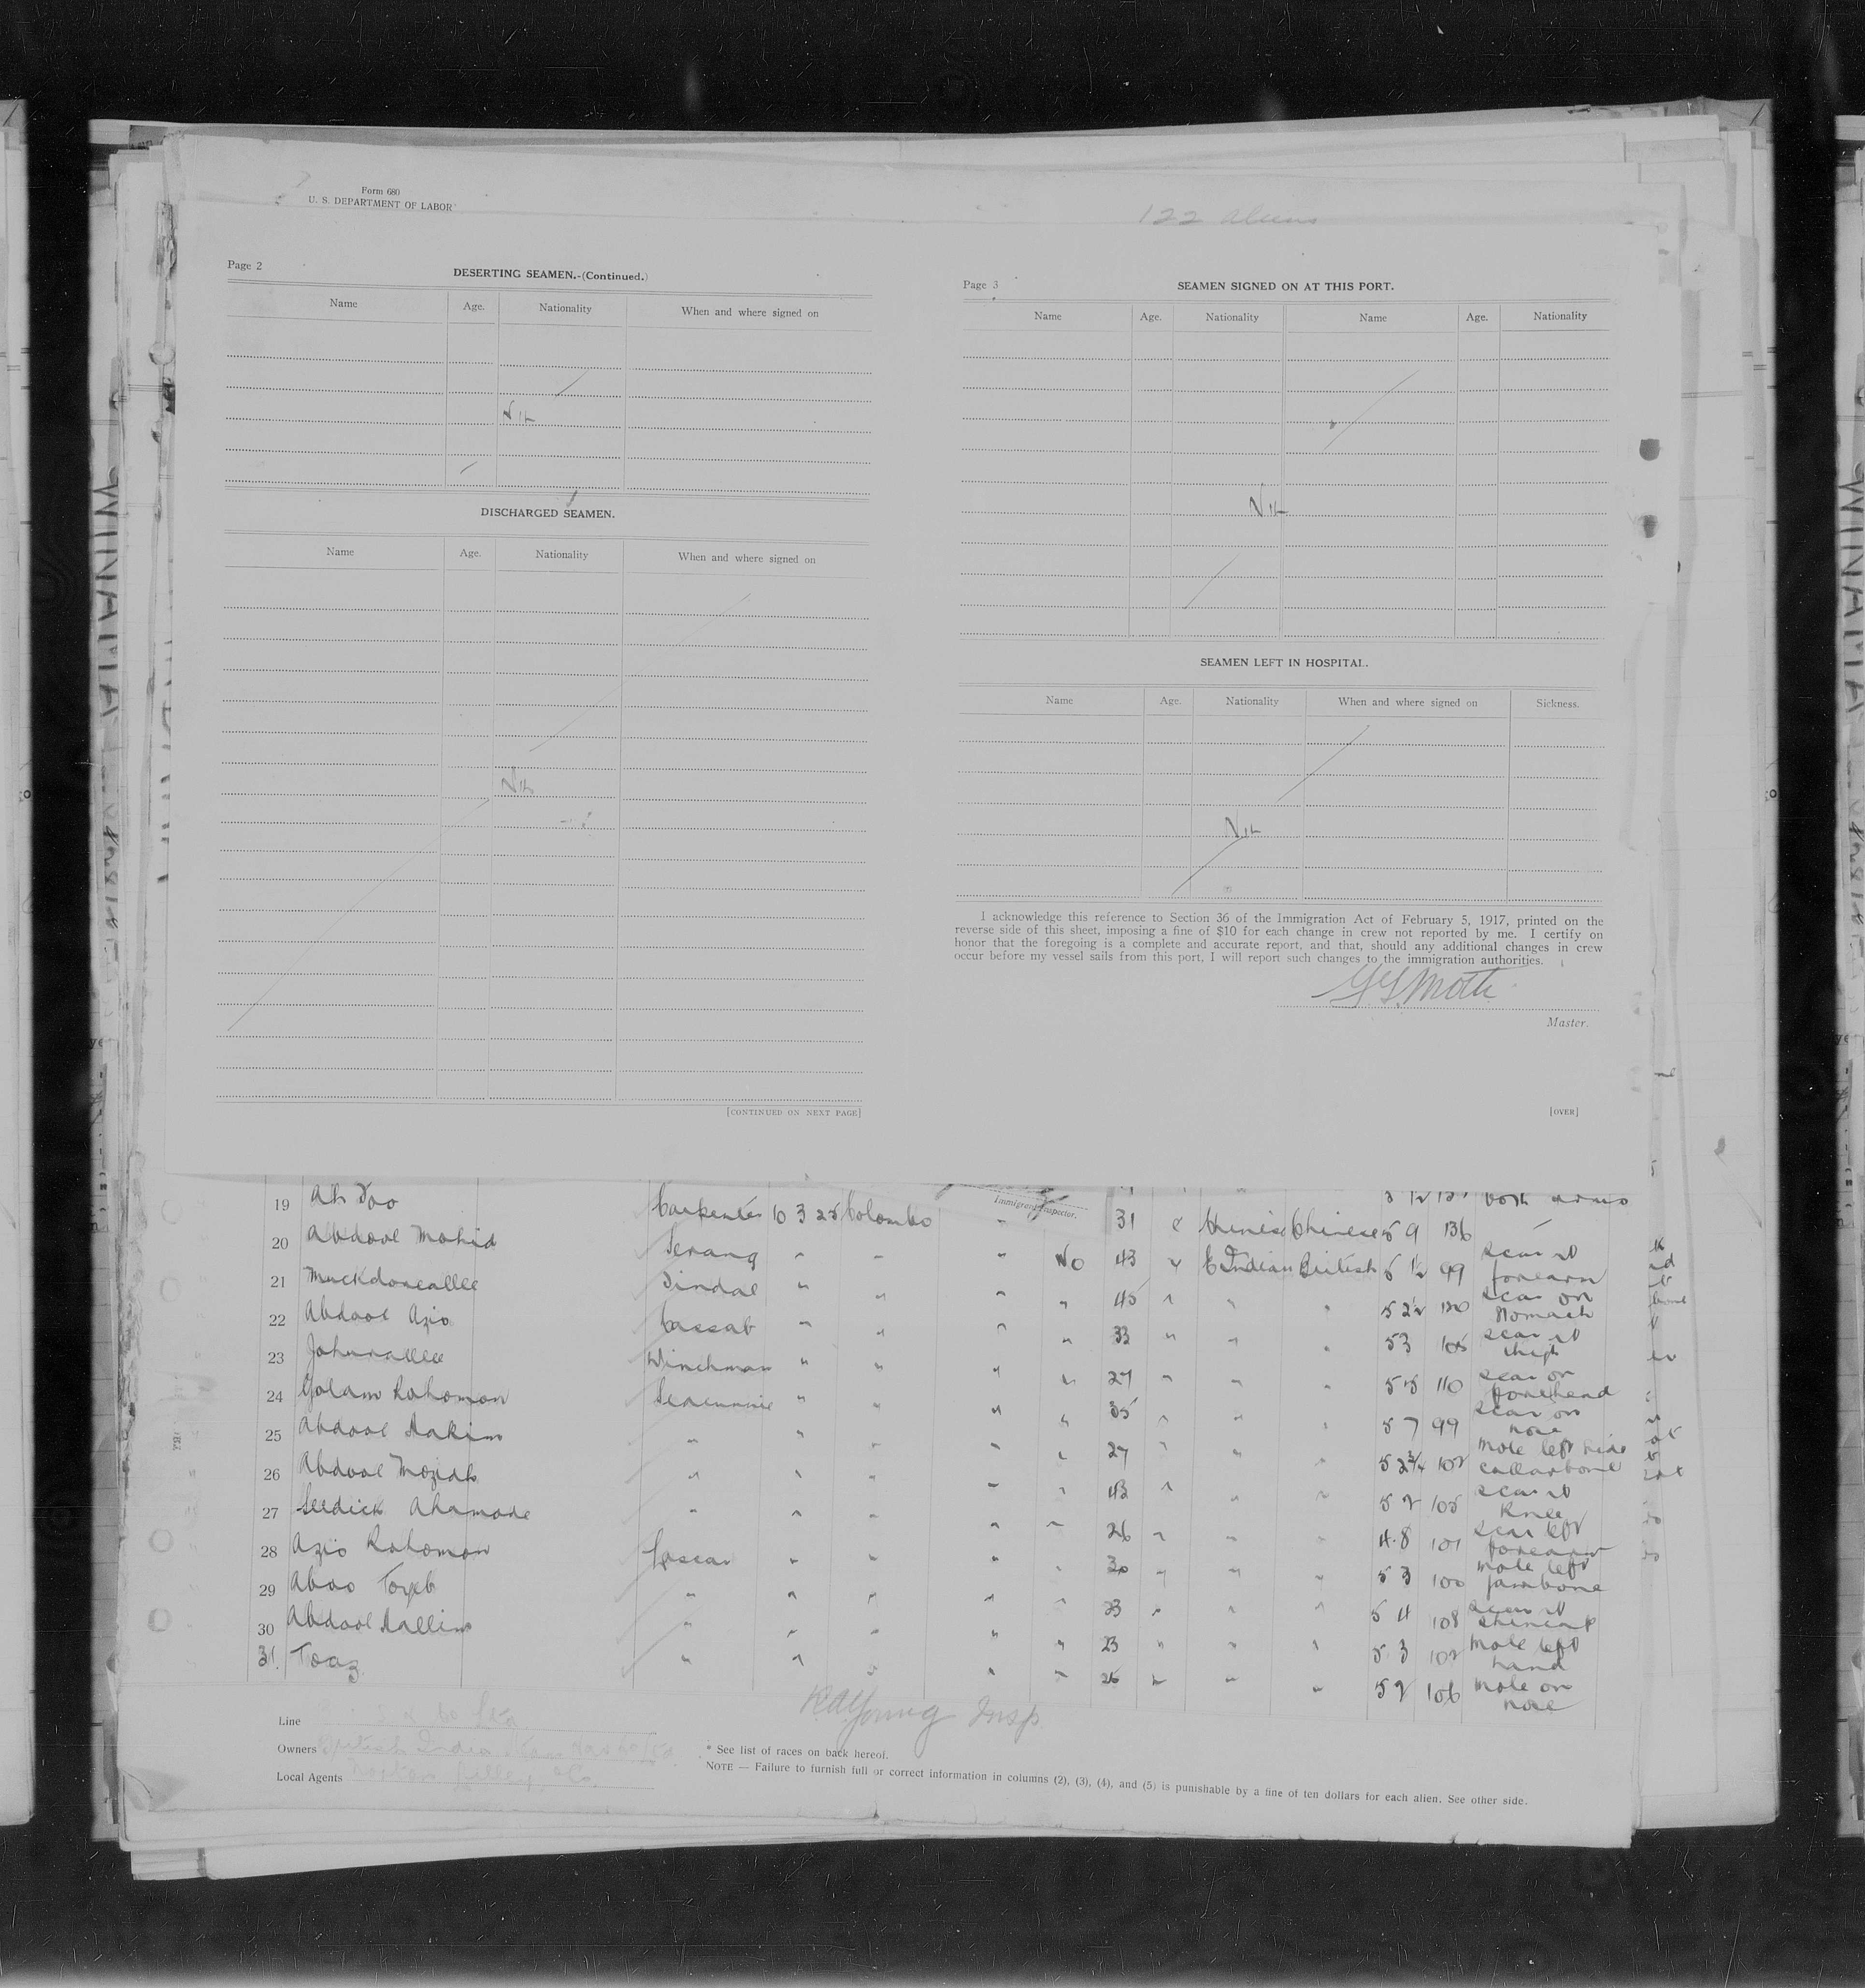 Form 680
U. S. DEPARTMENT OF LABOR
122 Aliens
Page 2
DESERTING SEAMEN.-(Continued.)
Name Age. Nationality When and where signed on
Nil
DISCHARGED SEAMEN.
Name Age. Nationality When and where signed on
Nil
[CONTINUED ON NEXT PAGE]
Page 3
SEAMEN SIGNED ON AT THIS PORT.
Name Age. Nationality Name Age. Nationality
Nil
SEAMEN LEFT IN HOSPITAL.
Name Age. Nationality When and where signed on Sickness.
Nil
I acknowledge this reference to Section 36 of the Immigration Act of February 5, 1917, printed on the
reverse side of this sheet, imposing a fine of $10 for each change in crew not reported by me. I certify on
honor that the foregoing is a complete and accurate report, and that, should any additional changes in crew
occur before my vessel sails from this port, I will report such changes to the immigration authorities.
Master.
[OVER]
Immigrant Inspector.
19 Carpenter 10 3 25 Colombo " 31 " Chinese Chinese 5 9 136
20 Abdool Mahid Serang " " " No 43 " E Indian British 5 1½ 99 scar rt forearm
21 Muckdoneallee Tindal " " " " 45 " " " 5 2½ 120 scar on stomach
22 Abdool Azio Cassab " " " " 33 " " " 5 3 105 scar rt thigh
23 Winchman " " " " 27 " " " 5 5 110 scar on forehead
24 Golam Rohomon " " " " 35 " " " 5 7 99 scar on nose
25 Abdool Hakim " " " " " 27 " " " 5 2¾ 102 mole left side collarbone
26 Abdool " " " " " 43 " " " 5 2 105 scar rt Knee
27 Seedick Ahamode " " " " " 26 " " " 4.8 101 scar left forearm
28 Azio Rohomon Lascar " " " " 30 " " " 5 3 100 mole left jawbone
29 Aboo Toyeb " " " " " 23 " " " 5 4 108 scar rt
30 Abdool Hallim " " " " " 23 " " " 5.3 102 mole left hand
31. " " " " " " " " 5 2 106 mole on nose
R A Young Insp
Line
Owners British India Steam
Local Agents Norton Lilley & Co.
* See list of races on back hereof.
NOTE — Failure to furnish full or correct information in columns (2), (3), (4), and (5) is punishable by a fine of ten dollars for each alien. See other side.